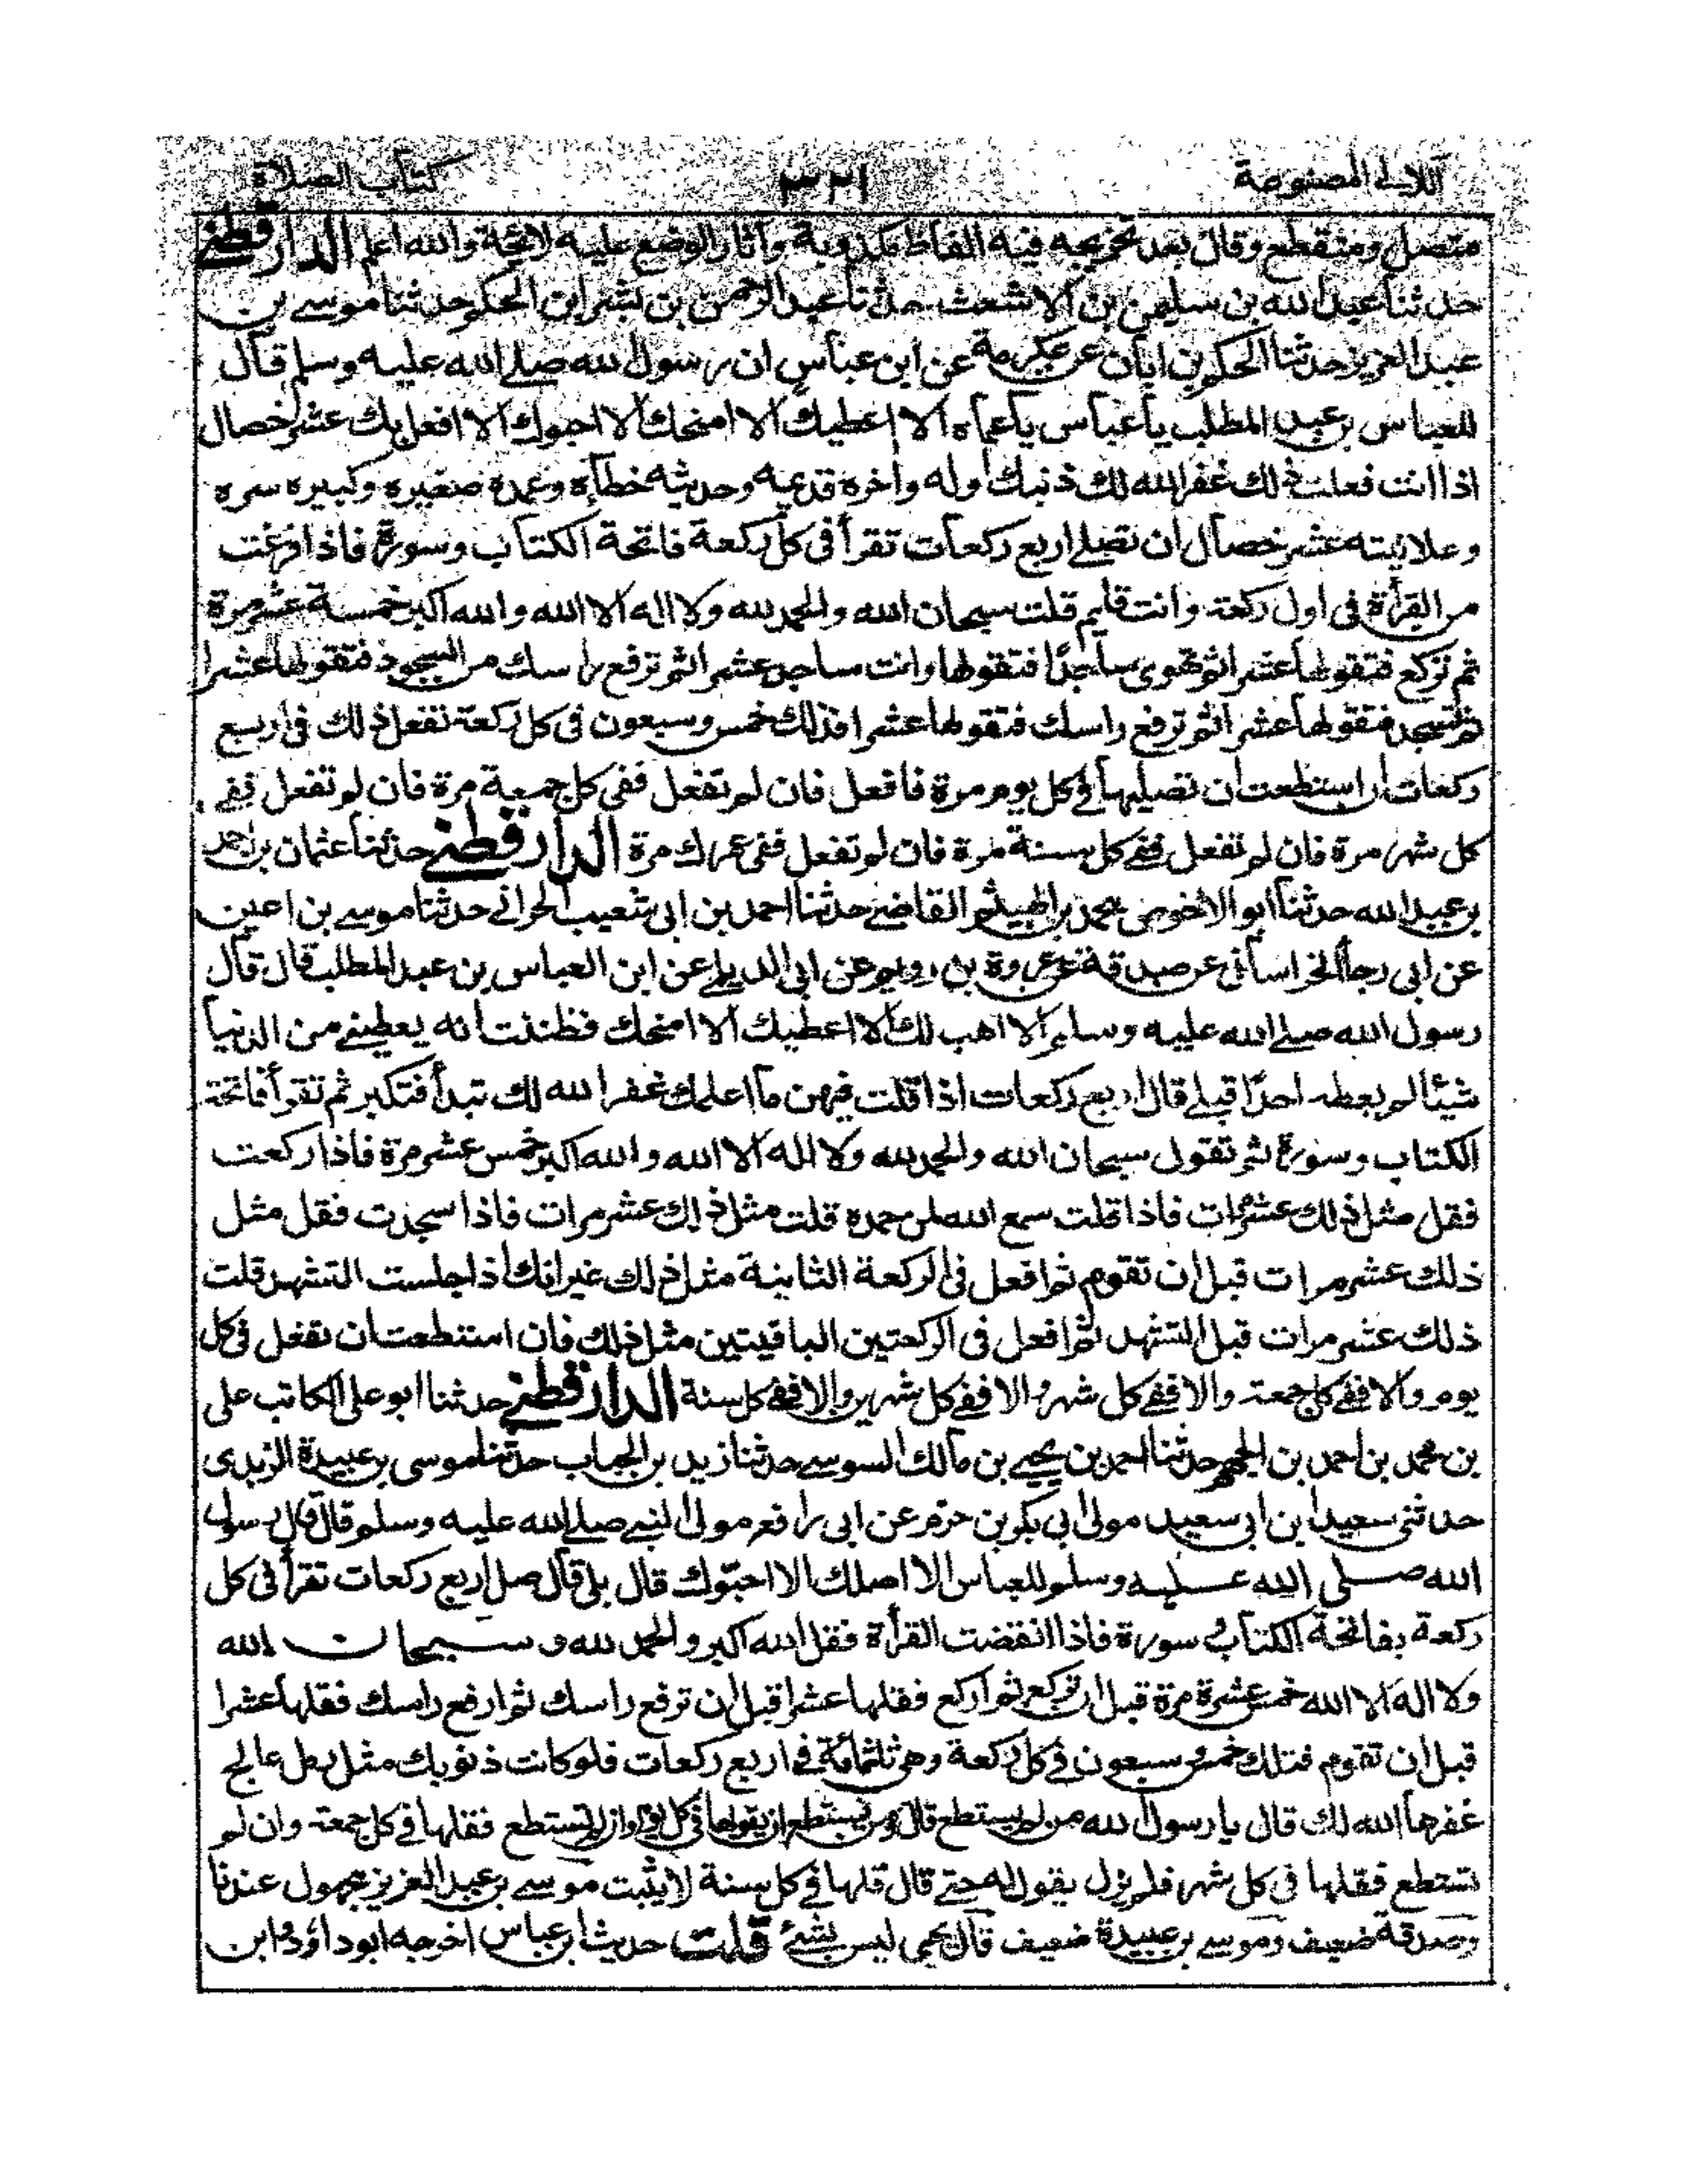 اللآلى المصنوعة ٣٢١ كتاب الصلاة
متصل ومنقطع وقال بعد تخريجه فيه الفاظ مكذوبة وآثار الوضع عليه لائحة والله اعلم الدارقطنے
حدثنا عبد الله بن سليمن بن الاشعث حدثنا عبد الرحمن بن بشر ابن الحكم حدثنا موسے بن
عبد العزيز حدثنا الحكم بن ابان عن عكرمة عن ابن عباس ان رسول الله صلے الله عليه وسلم قال
للعباس بن عبد المطلب يا عباس يا عماه الا اعطيك الا امنحك الا احبوك الا افعل بك عشر خصال
اذا انت فعلت ذلك غفر الله لك ذنبك اوله واخره قديمه وحديثه خطأه وعمده صغيره وكبيره سره
وعلانيته عشر خصال ان تصلے اربع ركعات تقرأ فى كل ركعة فاتحة الكتاب وسورة فاذا فرغت
من القرأة فى اول ركعة وانت قايم قلت سبحان الله والحمد لله ولا اله الا الله والله اكبر خمسة عشر مرة
ثم تركع فتقولها عشرا ثم تهوى ساجدًا فتقولها وانت ساجد عشرا ثم ترفع راسك من السجود فتقولها عشرا
ثم تسجد فتقولها عشرا ثم ترفع راسك فتقولها عشرا فذلك خمس وسبعون فى كل ركعة تفعل ذلك فى اربع
ركعات ان استطعت ان تصليها فے كل يوم مرة فافعل فان لم تفعل ففى كل جمعة مرة فان لم تفعل ففے
كل شهر مرة فان لم تفعل ففے كل سنة مرة فان لم تفعل ففى عمرك مرة الدارقطنے حدثنا عثمان بن احمد
بن عبد الله حدثنا ابو الاحوص محمد بن الهيثم القاضے حدثنا احمد بن ابى شعيب الحرانے حدثنا موسے بن اعين
عن ابى رجاء الخراسانى عن صدقة عن عروة بن رويم عن ابى الديلمے عن ابن العباس بن عبد المطلب قال قال
رسول الله صلے الله عليه وسلم الا اهب لك الا اعطيك الا امنحك فظننت انه يعطينے من الدنيا
شيئا لم يعطه احدًا قبلے قال اربع ركعات اذا قلت فيهن ما اعلمك غفر الله لك تبدأ فتكبر ثم تقرأ فاتحة
الكتاب وسورة ثم تقول سبحان الله والحمد لله ولا اله الا الله والله اكبر خمس عشر مرة فاذا ركعت
فقل مثل ذلك عشر مرات فاذا قلت سمع الله لمن حمده قلت مثل ذلك عشر مرات فاذا سجدت فقل مثل
ذلك عشر مرات قبل ان تقوم ثم افعل فى الركعة الثانية مثل ذلك غير انك اذا جلست التشهد قلت
ذلك عشر مرات قبل التشهد ثم افعل فى الركعتين الباقيتين مثل ذلك فان استطعت ان تفعل فى كل
يوم والا ففے كل جمعة والا ففے كل شهر والا ففے كل شهرين والا ففے كل سنة الدارقطنے حدثنا ابو على الكاتب على
بن محمد بن احمد بن الجهم حدثنا احمد بن يحيے بن مالك السوسے حدثنا زيد بن الحباب حدثنا موسى بن عبيدة الزبدى
حدثنى سعيد ابن ابى سعيد مولى ابى بكر بن حزم عن ابى رافع مولى النبے صلے الله عليه وسلم قال قال رسول
الله صلى الله عليه وسلم للعباس الا اصلك الا احبّوك قال بلى قال صل اربع ركعات تقرأ فى كل
ركعة بفاتحة الكتاب وسورة فاذا انقضت القرأة فقل الله اكبر والحمد لله و سبحان الله
ولا اله الا الله خمس عشرة مرة قبل ان تركع ثم اركع فقلها عشرا قبل ان ترفع راسك ثم ارفع راسك فقلها عشرا
قبل ان تقوم فتلك خمس وسبعون فے كل ركعة وهى ثلثمائة فے اربع ركعات فلو كانت ذنوبك مثل رمل عالج
غفرها الله لك قال يا رسول الله من لم يستطع قال ومن يستطع ان يقولها فى كل يوم وان لم تستطع فقلها فے كل جمعة وان لم
تستطع فقلها فى كل شهر فلم يزل يقول له حتے قال قلها فے كل سنة لا يثبت موسے بن عبد العزيز مجهول عندنا
وصدقة ضعيف وموسے بن عبيدة ضعيف قال يحيى ليس بشئ قلت حديث ابن عباس اخرجه ابو داؤد وابن